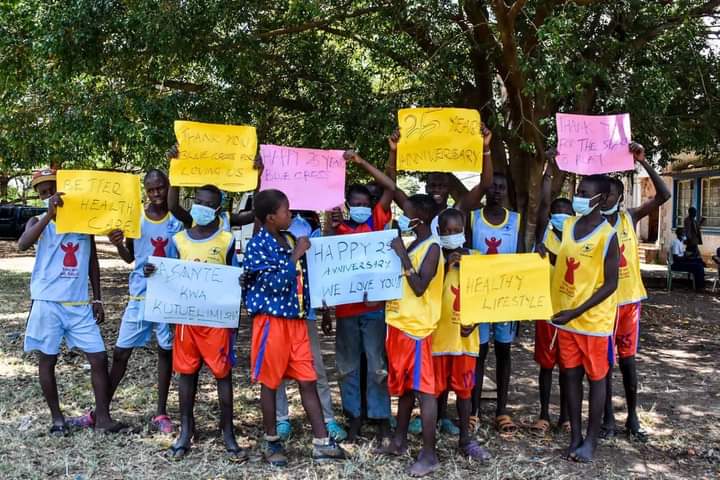 BETTER HEALTH
CARE
THANK YOU
BLUE CROSS FOR
LOVING US
HAPPY 25 YEARS
BLUE CROSS
25 YEARS
ANNIVERSARY
THANK YOU
FOR THE
TO PLAY
ASANTE
KWA
KUTUELIMISHA
HAPPY 25th
ANNIVERSARY
WE LOVE YOU
HEALTHY
LIFESTYLE